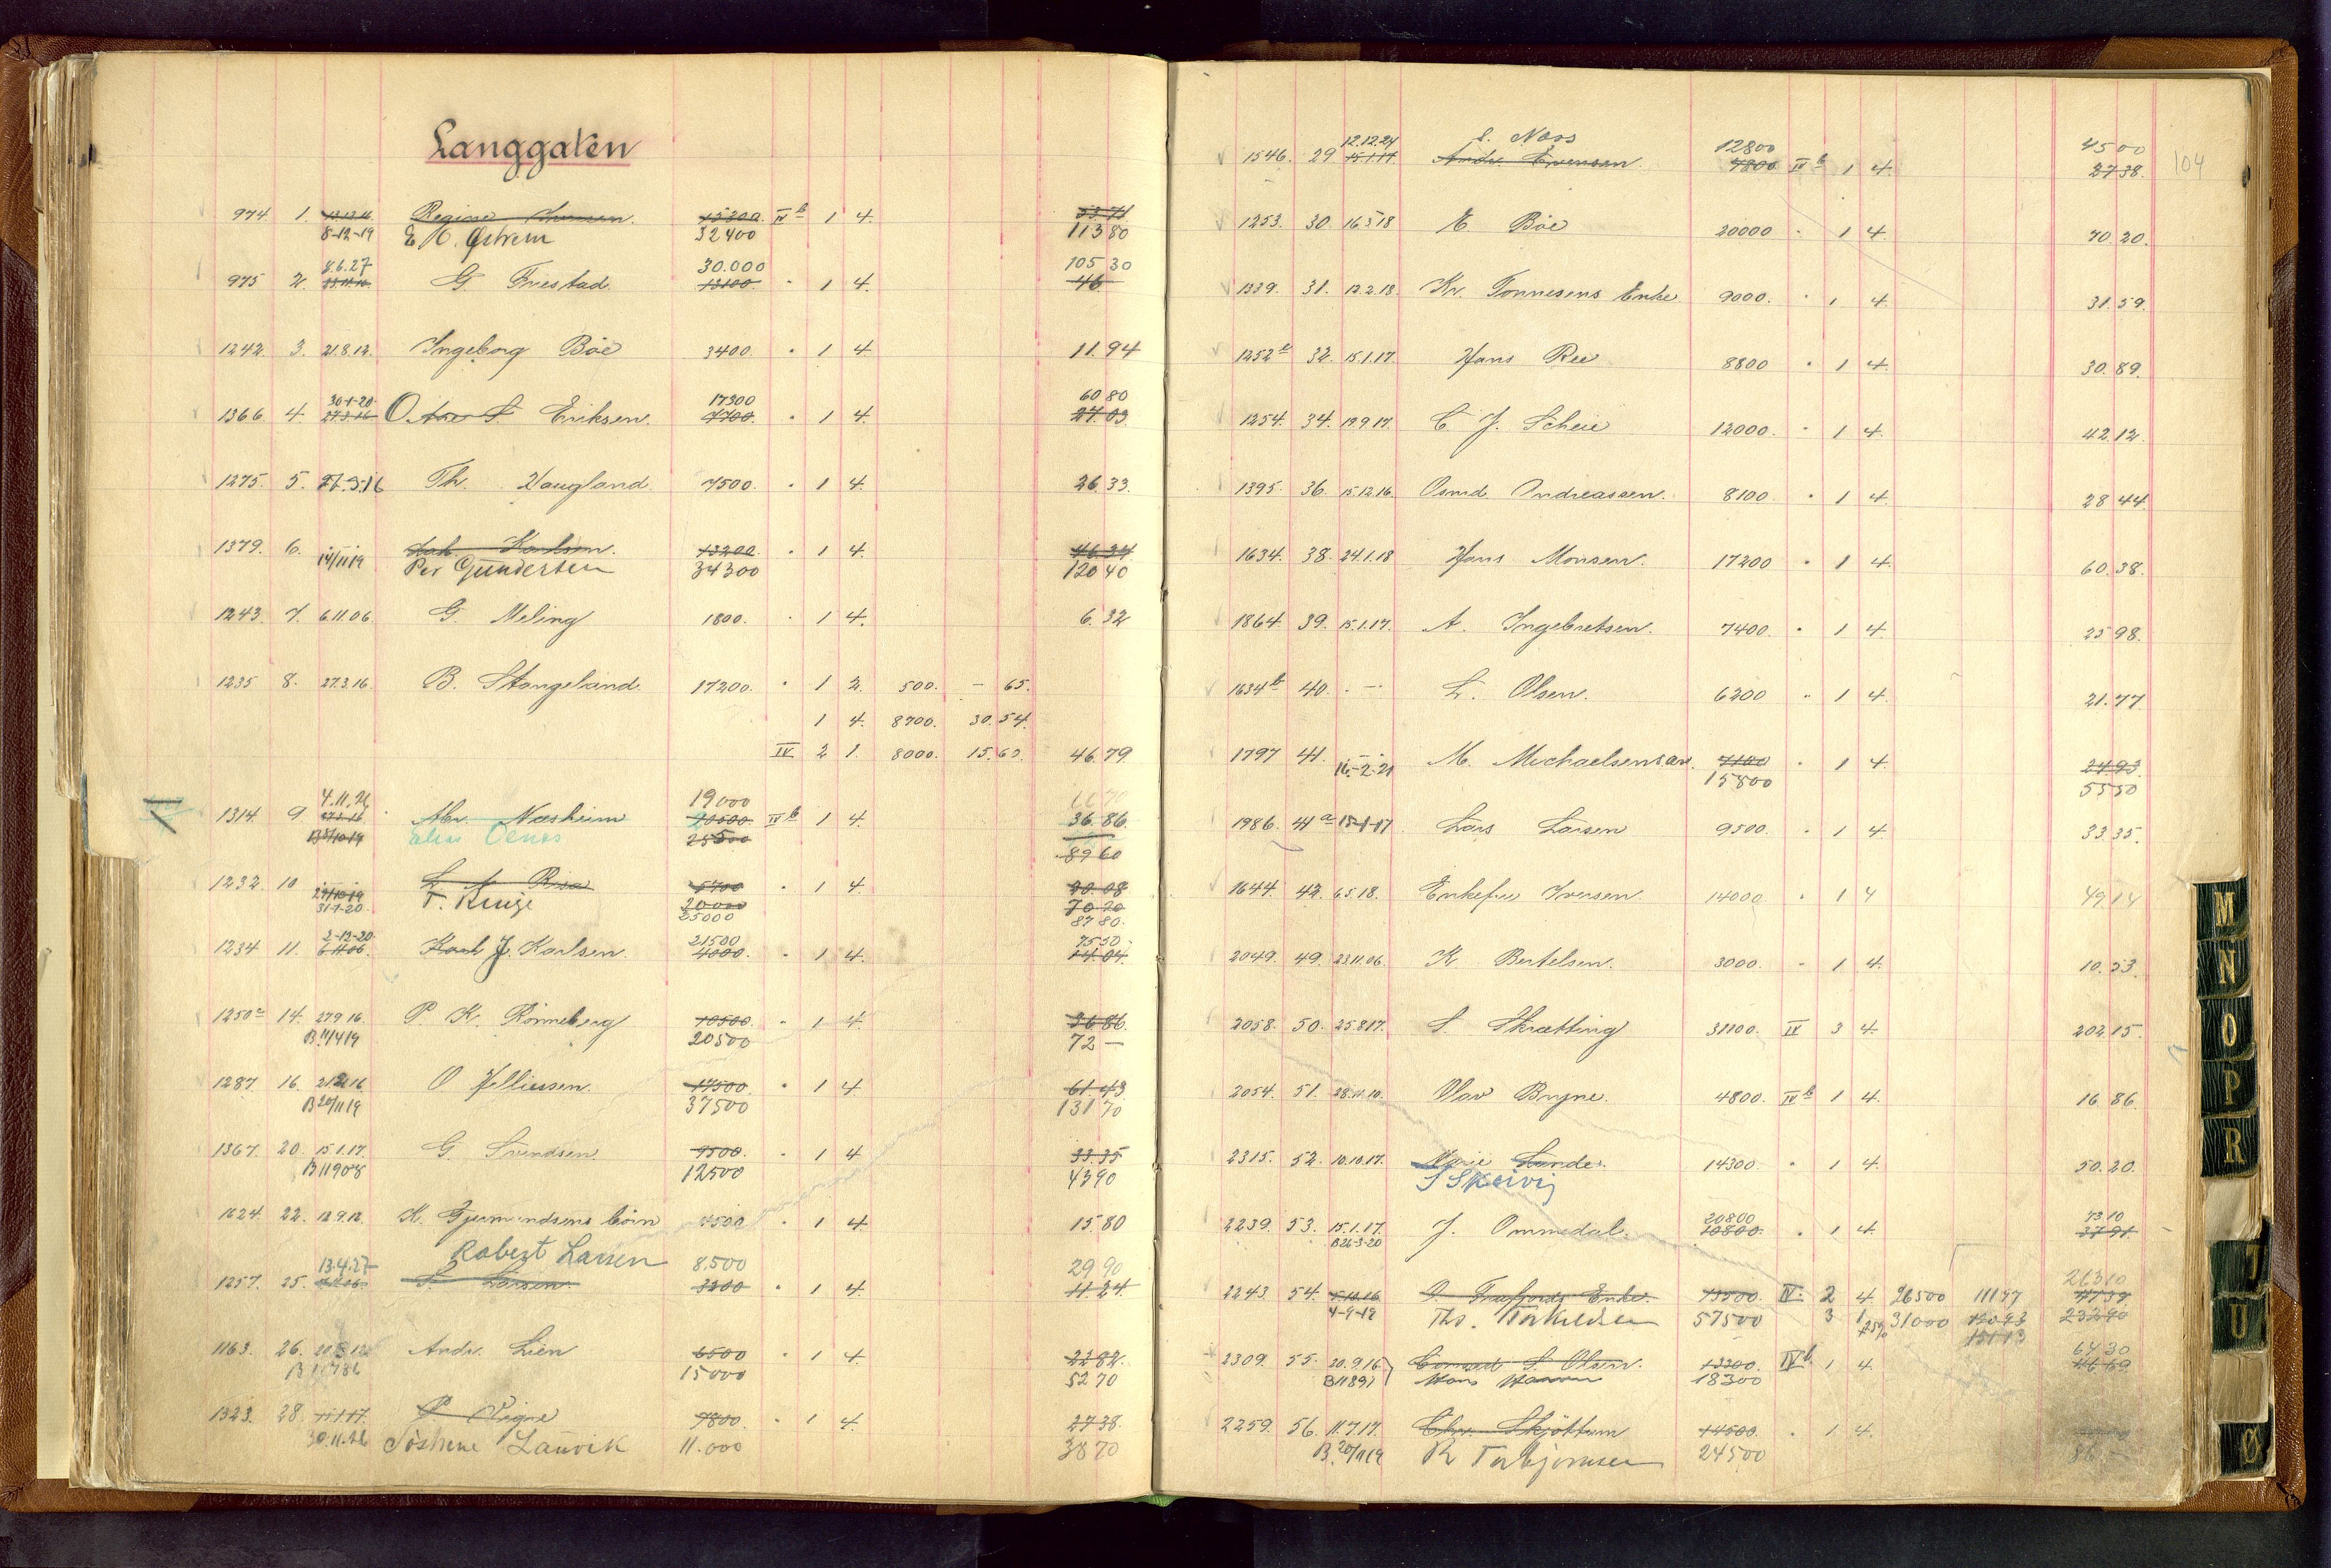 Langgaten
974 1. 8-12-19 Regine Iversen. 15300. IV b 1 4. 53.71
E. O. Østrem 32400 113 80
8.6.27 30.000 105 30
975 2. G. Friestad 13100 " 1 4. 46
1242 3. 21.8.12. Ingeborg Böe 3400. " 1 4 11.94
30-1-20 17300 60 80
1366 4. 27.3.16 O Eriksen. 7700. " 1 4. 27.03
1275. 5. 27.3.16 Th. Haugland. 7500. " 1 4. 26.33.
1379. 6. Karlsen. 13200. " 1 4. 46.34
14/11 19 Per Gundersen 34300 120 40
1243. 7. 6.11.06. G. Meling 1800. " 1 4. 6.32
1235 8. 27.3.16. B. Stangeland. 17200. " 1 2. 500. – 65.
1 4. 8700. 30.54.
IV 2 1. 8000. 15.60. 46.79
4.11.26 19000
1314. 9 27.3.16 Næsheim 10500 IV b 1 4. 36.86.
Elias Oenes 25500 89 60
1232. 10 Risa 5700 " 1 4 20.08
29/10 19 T. Runge 20000 70 20
31-1-20. 25000 87 80.
2-12-20. 21500 75 50
1234 11. 6.11.06. J. Karlsen. 4000. " 1 4. 14.04.
1250a 14. 27.9.16 P. K. Rönneberg 10500. " 1 4. 36.86.
B 11/4 19 20500 72 –
1287. 16. O Helliesen. 17500. " 1 4. 61.43
B 20/11 19 37500 131 70
1367. 20. 15.1.17. G. Svendsen. 9500. " 1 4 33.35
B 11908 12500 43 90
1624. 22. 12.9.12. K. Gjermundsens börn 4500 " 1 4. 15.80
13.4.27 Robert Larsen 8.500 29 90
1257. 25. Larsen. 3200 " 1 4 11.24.
1163. 26. Andr. Lien 6500 " 1 4. 22.82.
B 11786 15000 52 70
1323. 28. 15.1.17. P. Vigre 7800. " 1 4. 27.38.
30.11.26 Lauvik 11.000 38 70
104
12.12.24 Næss 12800 45 00
1546. 29. 15.1.17. Andr. Evensen. 7800. IV b 1 4. 27.38.
1253. 30. 16.5.18 E. Böe 20000 " 1 4. 70.20.
1339. 31. 12.2.18. Kr. Tonnesens Enke 9000. " 1 4. 31.59.
1252 b 32. 15.1.17. Hans Ree 8800 " 1 4. 30.89.
1254. 34. 19.9.17. C. J. Scheie 12000. " 1 4. 42.12.
1395. 36. 15.12.16. Osmd. Andreassen. 8100. " 1 4. 28.44.
1634. 38. 24.1.18 Hans Monsen. 17200 " 1 4. 60.38.
1864. 39. 15.1.17. A. Ingebretsen. 7400. " 1 4. 25.98.
1634 b 40. " – L. Olsen. 6200 " 1 4. 21.77
1797 41. " – M. Michaelsen 7100 " 1 4. 24.93.
16-2-21 15800 55 50
1986. 41 a 15-1-17. Lars Larsen 9500. " 1 4. 33.35.
1644. 42. 6.5.18. Enkefru Iversen. 14000. " 1 4 49 14
2049. 49. 23.11.06. K. Bertelsen. 3000. " 1 4. 10.53.
2058. 50. 25.8.17. S. Skrætting 31100. IV 3 4. 202.15.
2054. 51. 28.11.10. Olav Bryne. 4800. IV b 1 4. 16.86.
2315. 52. 10.10.17. Marie Lunde. 14300. " 1 4. 50.20.
S Skeivig
2239. 53. 15.1.17. J. Ommedal. 20800 10800. " 1 4. 73 10 37.91.
B 26-3-20
2243 54. 5.10.16 Enke. 13500. IV. 2 4. 26500 111 97 263 10 47.39
4-9-19 Ths. Torkildsen 57500 3 1 25% 31000 120 93 232 90
151 13
2309. 55. 20.9.16 Conrad S. Olsen. 13300. IV b 1 4. 64 30 46.69
B 11891 Hans Hansen 18300
2259. 56. 11.7.17. Chr. Skjöttum 14500. " 1 4.
B. 20/11 19 R Torbjornsen 24500 86 –
M
N
O
P
R
J
U
Ø